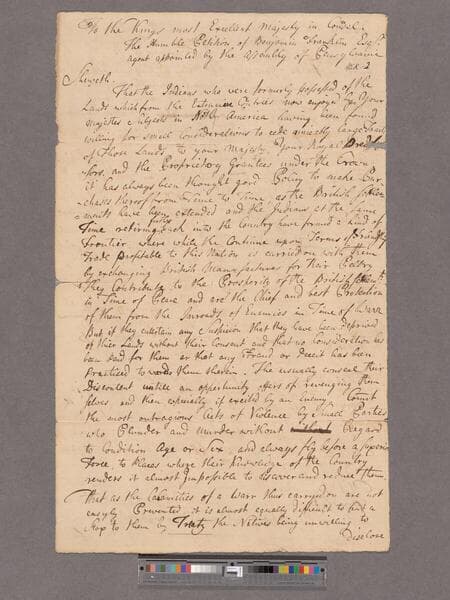 To the Kings most Excellent Majesty in Council.
The Humble Petition of Benjamin Franklin Esqr.
agent appointed by the Assembly of
Sheweth.
That the Indians who were formerly possessed of the
Lands which from the Extensive now enjoyed by your
majestys Subjects in North America having been found
willing for small Considerations to cede
of those Lands to your Majesty your Royal
sors, and the Proprietary Grantees under the Crown
it has always been thought good Policy to make Pur
chases thereof from Time to Time as the British settle
ments have been extended and the Indians at the same
Time retiring further into the Country have found a kind of
Frontier where while the Continue upon Terms of Friendship
Trade profitable to this Nation is carried on with them
by exchanging British Manufactures for their Peltry
They Contribute to the Prosperity of the British
in Time of Peace and are the Chief and best Protection
of them from the Inroads of Enemies in Time of Warr
But if they entertain any Suspicion that they have been deprived
of their Lands without their Consent and that no Consideration has
been paid for them or that any Fraud or deceit has been
practised towards them therein. The usually conseal their
Discontent untill an opportunity offers of revenging them
selves and then especially if excited by an Enemy. Comit
the most outragious Acts of Violence by small Parties
who Plunder and Murder without Regard
to Condition Age or Sex. and always fly before a superior
Force, to Places where their Knowledge of the Country
renders it almost Impossible to discover and reduce them.
That as the Calamities of a Warr thus carryed on are not
easyly Prevented it is almost equally difficult to put a
Stop to them by Treaty the Natives being unwilling to
disclose